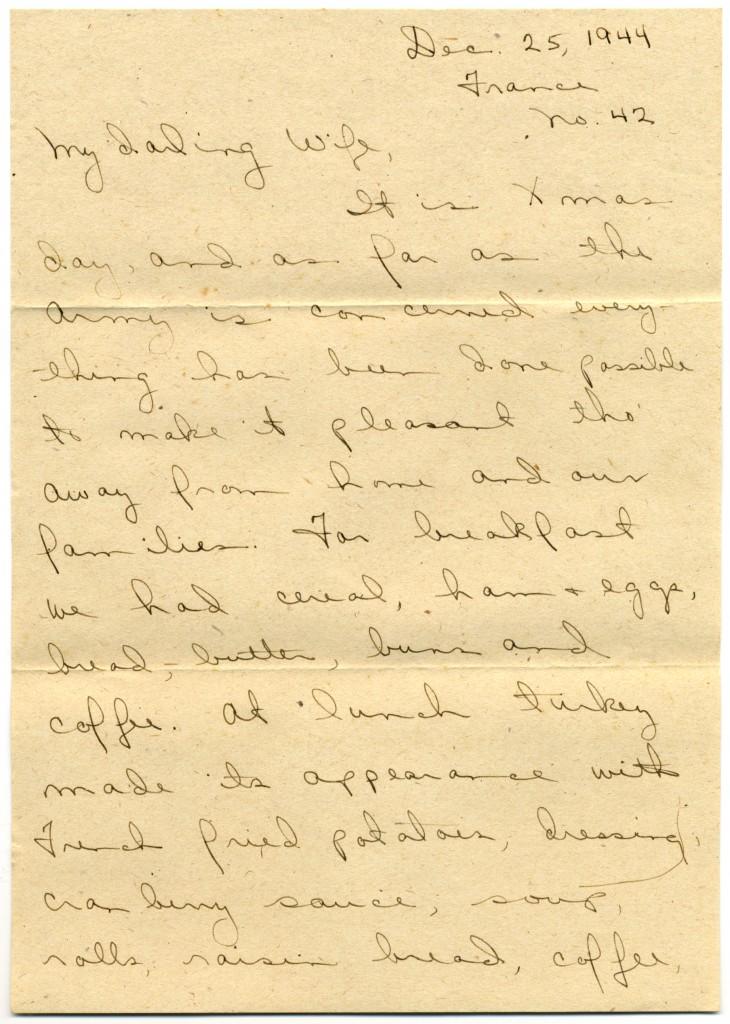 Dec. 25, 1944
France
No. 42
My darling Wife,
It is Xmas
day, and as far as the
Army is concerned every-
thing has been done possible
to make it pleasant tho'
away from home and our
families. For breakfast
we had cereal, ham + eggs,
bread, butter, buns and
coffee. At lunch turkey
made its appearance with
French fried potatoes, dressing,
cranberry sauce, soup,
rolls, raisin bread, coffee,